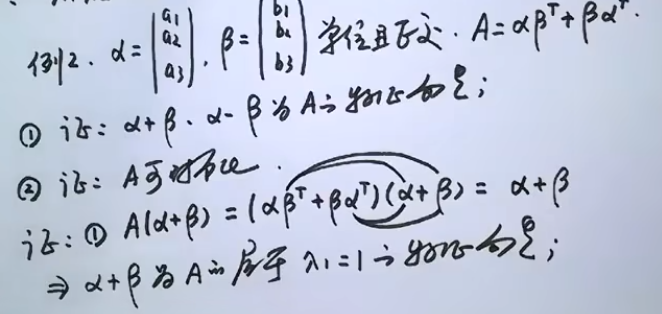 例2. α=(a1 a2 a3), β=(b1 b2 b3) 单位且正交. A=αβ^T+βα^T.
① 证: α+β、α-β为A的特征向量;
② 证: A可对角化.
证: ① A(α+β)=(αβ^T+βα^T)(α+β)=α+β
⇒ α+β为A的属于λ1=1的特征向量;